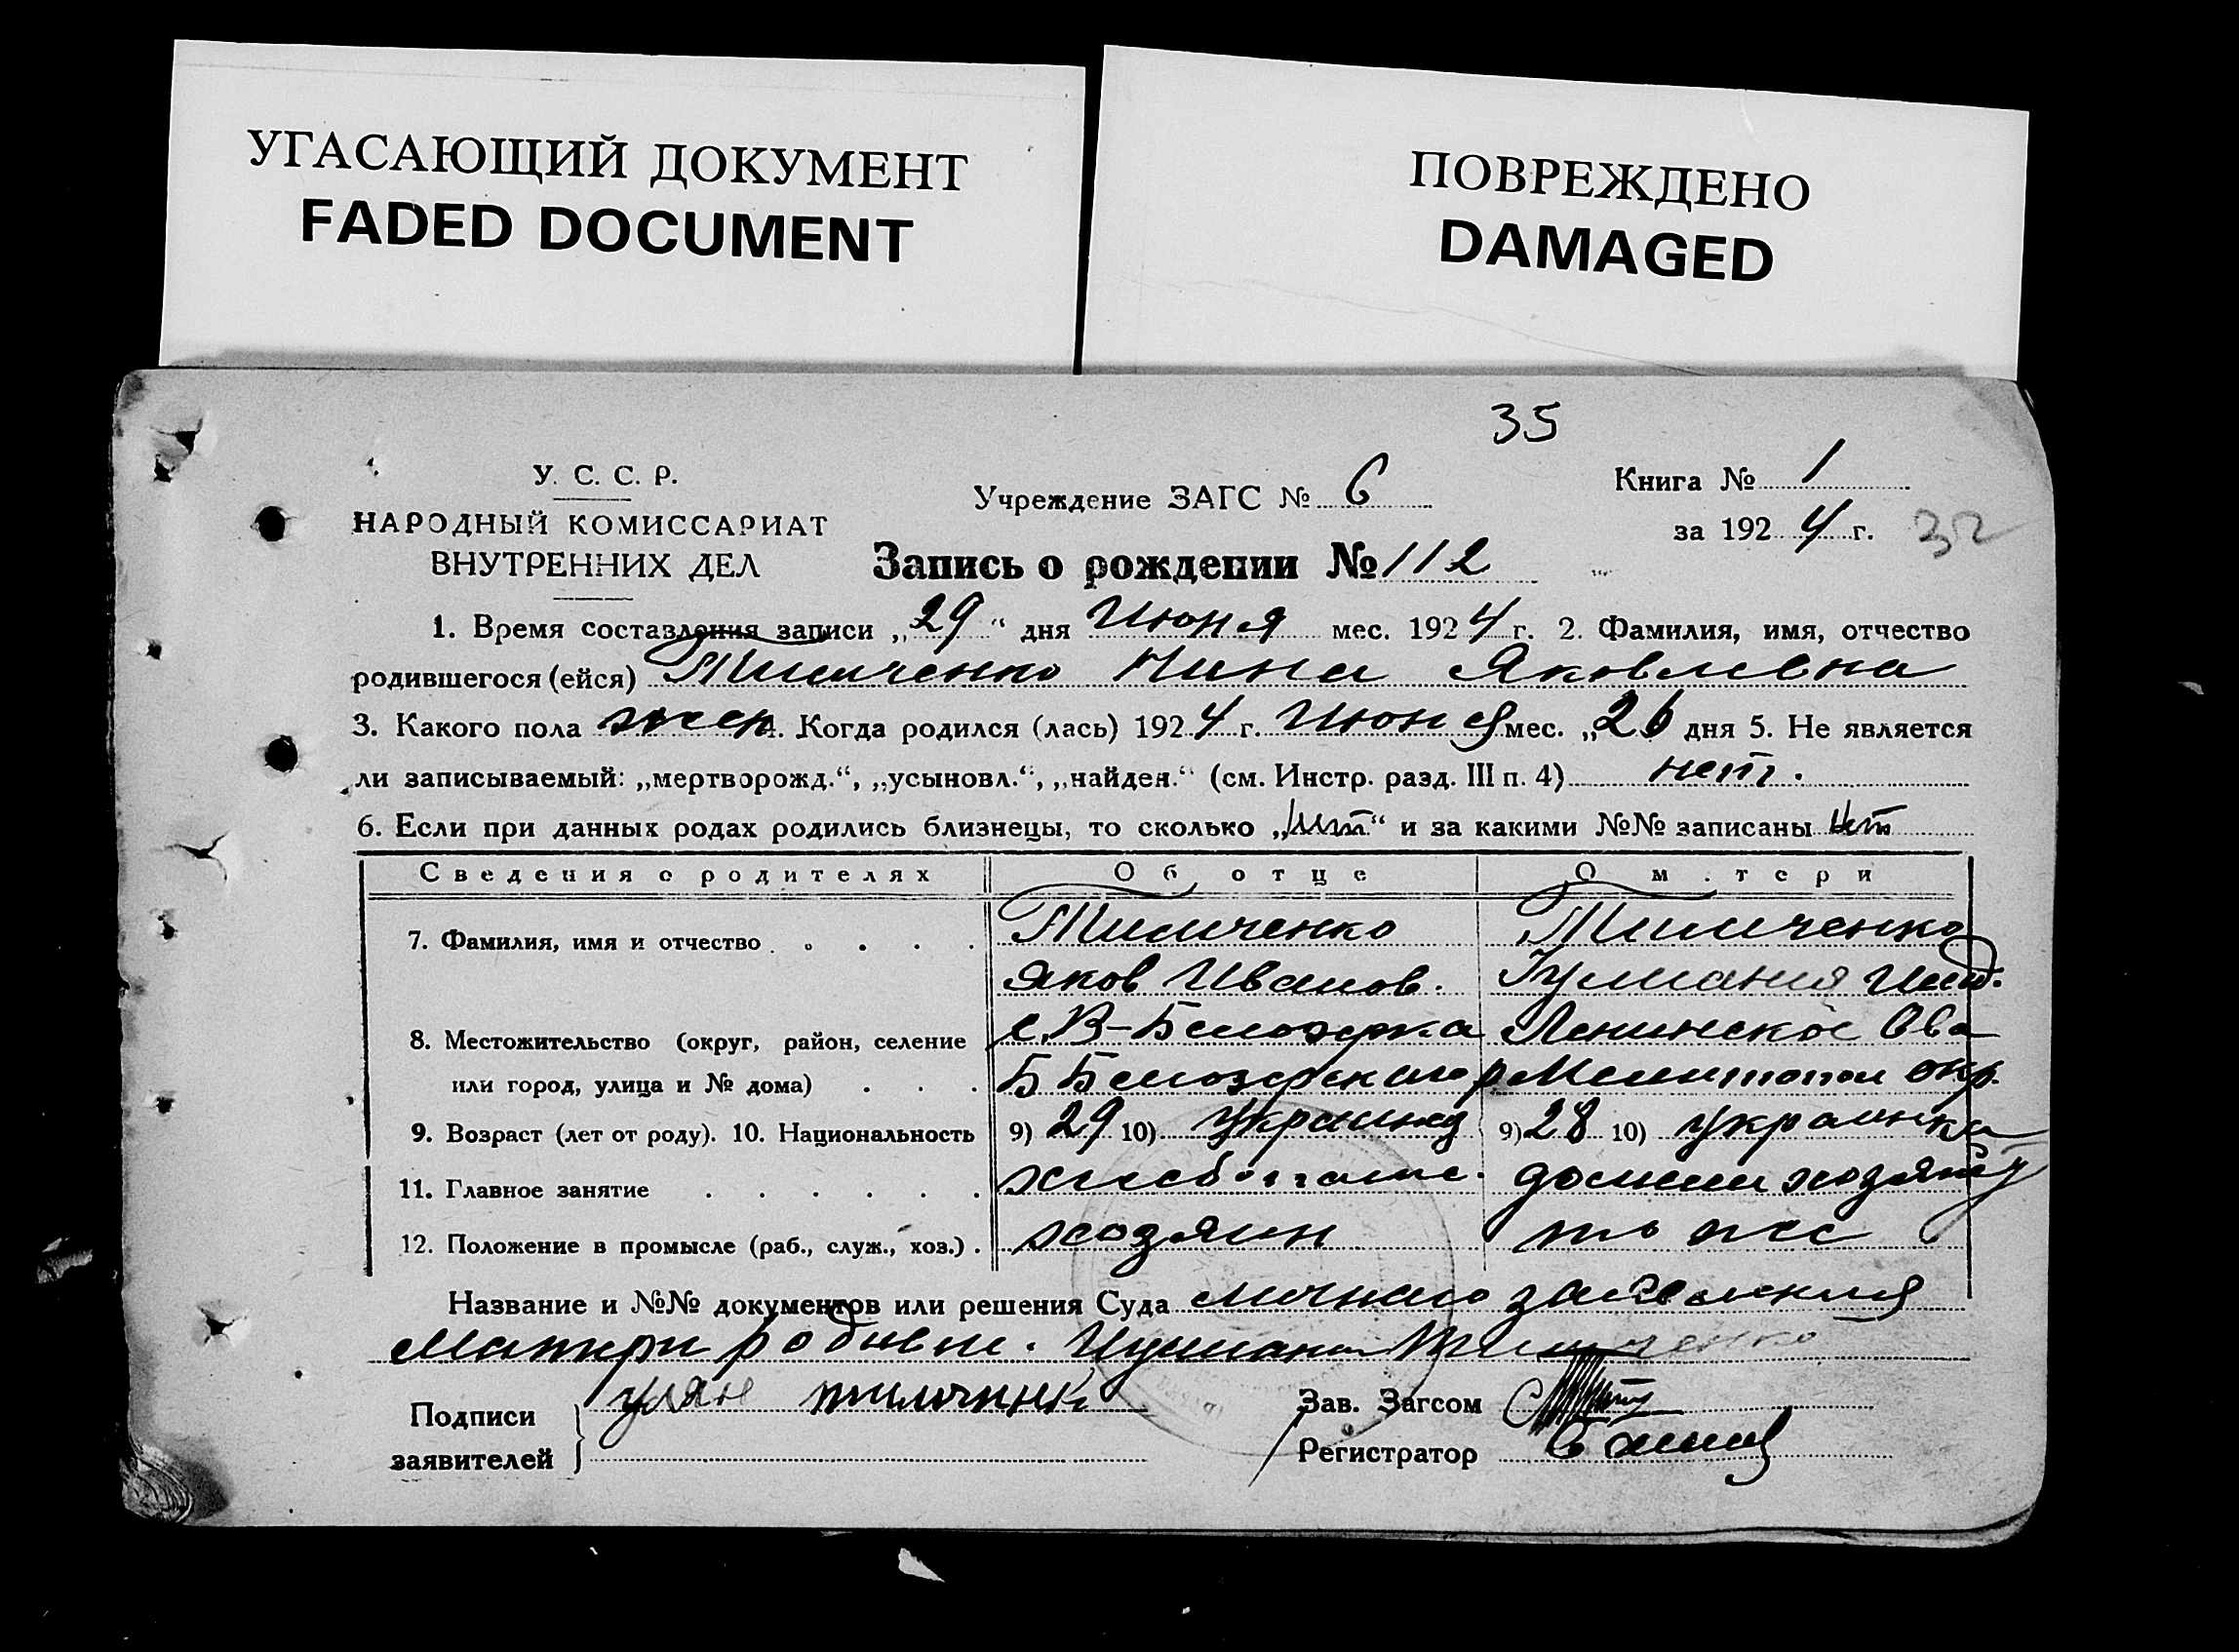 УГАСАЮЩИЙ ДОКУМЕНТ
FADED DOCUMENT
ПОВРЕЖДЕНО
DAMAGED
35
У. С. С. Р.
НАРОДНЫЙ КОМИССАРИАТ
ВНУТРЕННИХ ДЕЛ
Учреждение ЗАГС № 6
Книга № 1
за 1924 г. 32
Запись о рождении № 112
1. Время составления записи „29“ дня Июня мес. 1924 г. 2. Фамилия, имя, отчество
родившегося (ейся) Тимченко Нина Яковлевна
3. Какого пола жен 4. Когда родился (лась) 1924 г. Июня мес. „26 дня 5. Не является
ли записываемый: „мертворожд.“, „усыновл.“, „найден.“ (см. Инстр. разд. III п. 4) нет.
6. Если при данных родах родились близнецы, то сколько „нет“ и за какими №№ записаны нет
Сведения о родителях Об отце О м.тери
7. Фамилия, имя и отчество . . . . Тимченко Тимченко
Яков Иванов.
8. Местожительство (округ, район, селение с. В-Белозерка Ленинское
или город, улица и № дома) . . . Б Белозерского р Мелитопол окр.
9. Возраст (лет от роду). 10. Национальность 9) 29 10) Украинец 9) 28 10) украинка
11. Главное занятие . . . . . .
12. Положение в промысле (раб., служ., хоз.) . хозяин то же
Название и №№ документов или решения Суда личного заявления
Матери
Подписи
заявителей
Зав. Загсом
Регистратор